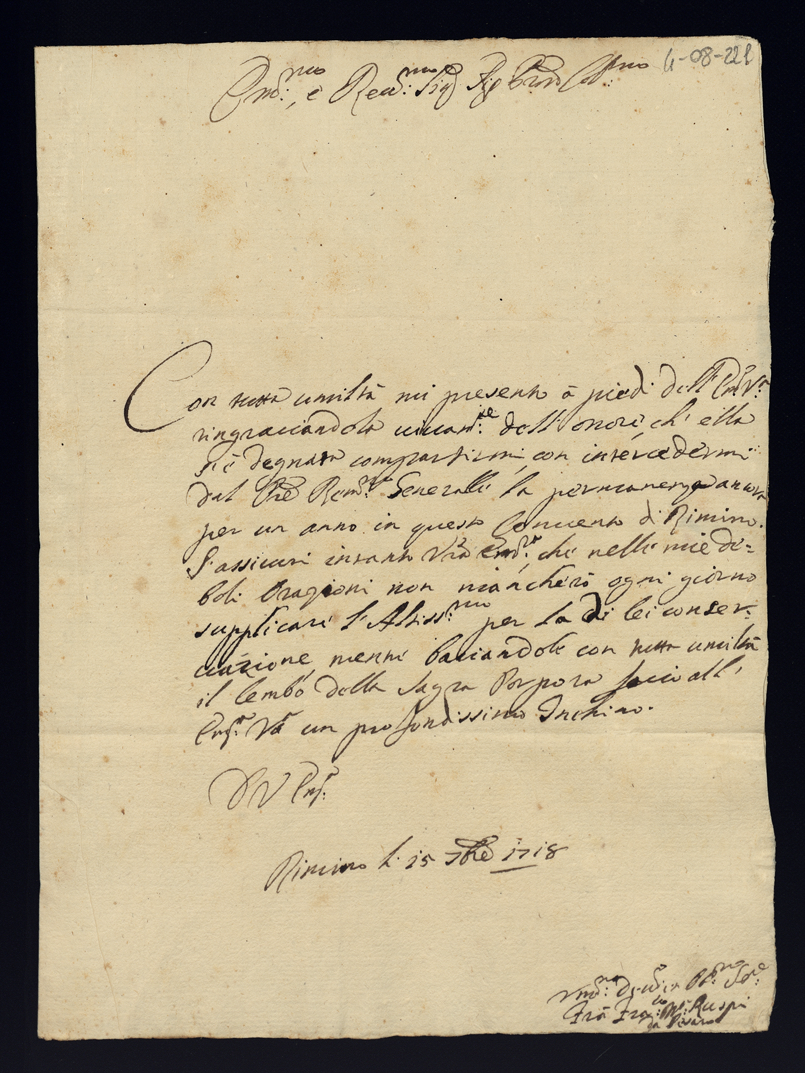 4-08-221
Em.mo, e Rev.mo Sig.re Sig.re Pron Col.mo
Con tutta umiltà mi presento à piedi dell'Em.za V.a
ringraziandola vivam.te dell'onore, ch'ella
si è degnata compartirmi, con intercedermi
dal Pre Rem.o Generalle la permanenza ancora
per un anno in questo Convento di Rimino.
S'assicuri intanto V.ra Em.za, che nelle mie de=
boli Orazioni non mancherò ogni giorno
supplicare l'Altiss.mo per la di lei conser-
vazione, mentre baciandole con tutta umiltà
il lembo della Sagra Porpora faccio all'
Em.za V.a un profondissimo Inchino.
D V Em.za
Rimino li 15 7bre 1718
Um.mo Dev.mo Ob.mo Ser.re
Frà Fra.co M.a Ruspi
da Pesaro